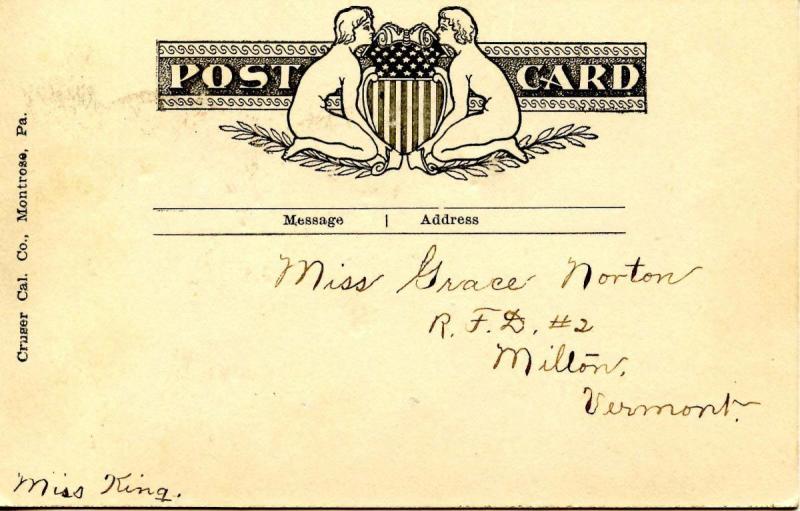 POST CARD
Message | Address
Cruser Cal. Co., Montrose, Pa.
Miss Grace Norton
R. F. D. #2
Milton,
Vermont.
Miss King.